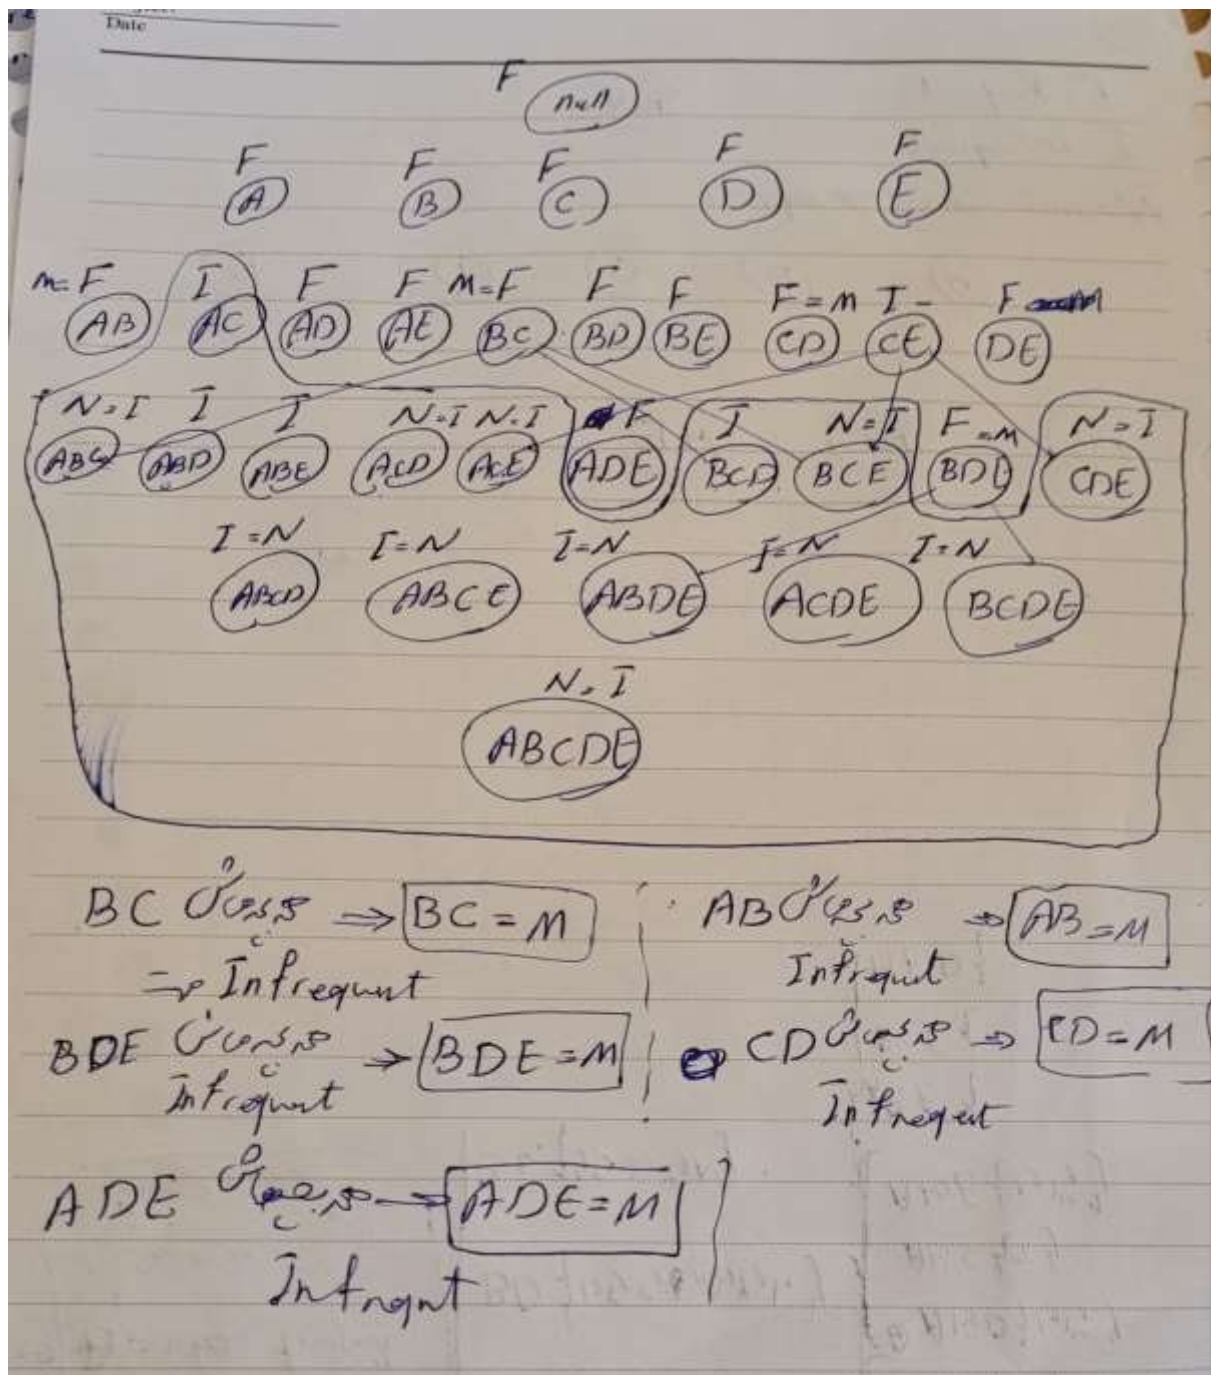 Date
F
null
F F F F F
A B C D E
m=F I F F M=F F F F=M I- F
AB AC AD AE BC BD BE CD CE DE
N=I I I N=I N=I F I N=I F=M N=I
ABC ABD ABE ACD ACE ADE BCD BCE BDE CDE
I=N I=N I=N I=N I=N
ABCD ABCE ABDE ACDE BCDE
N=I
ABCDE
BC ⇒ BC=M
⇒ Infrequent
AB ⇒ AB=M
Infrequit
BDE ⇒ BDE=M
Infrequent
CD ⇒ CD=M
Infreqent
ADE → ADE=M
Infrqnt